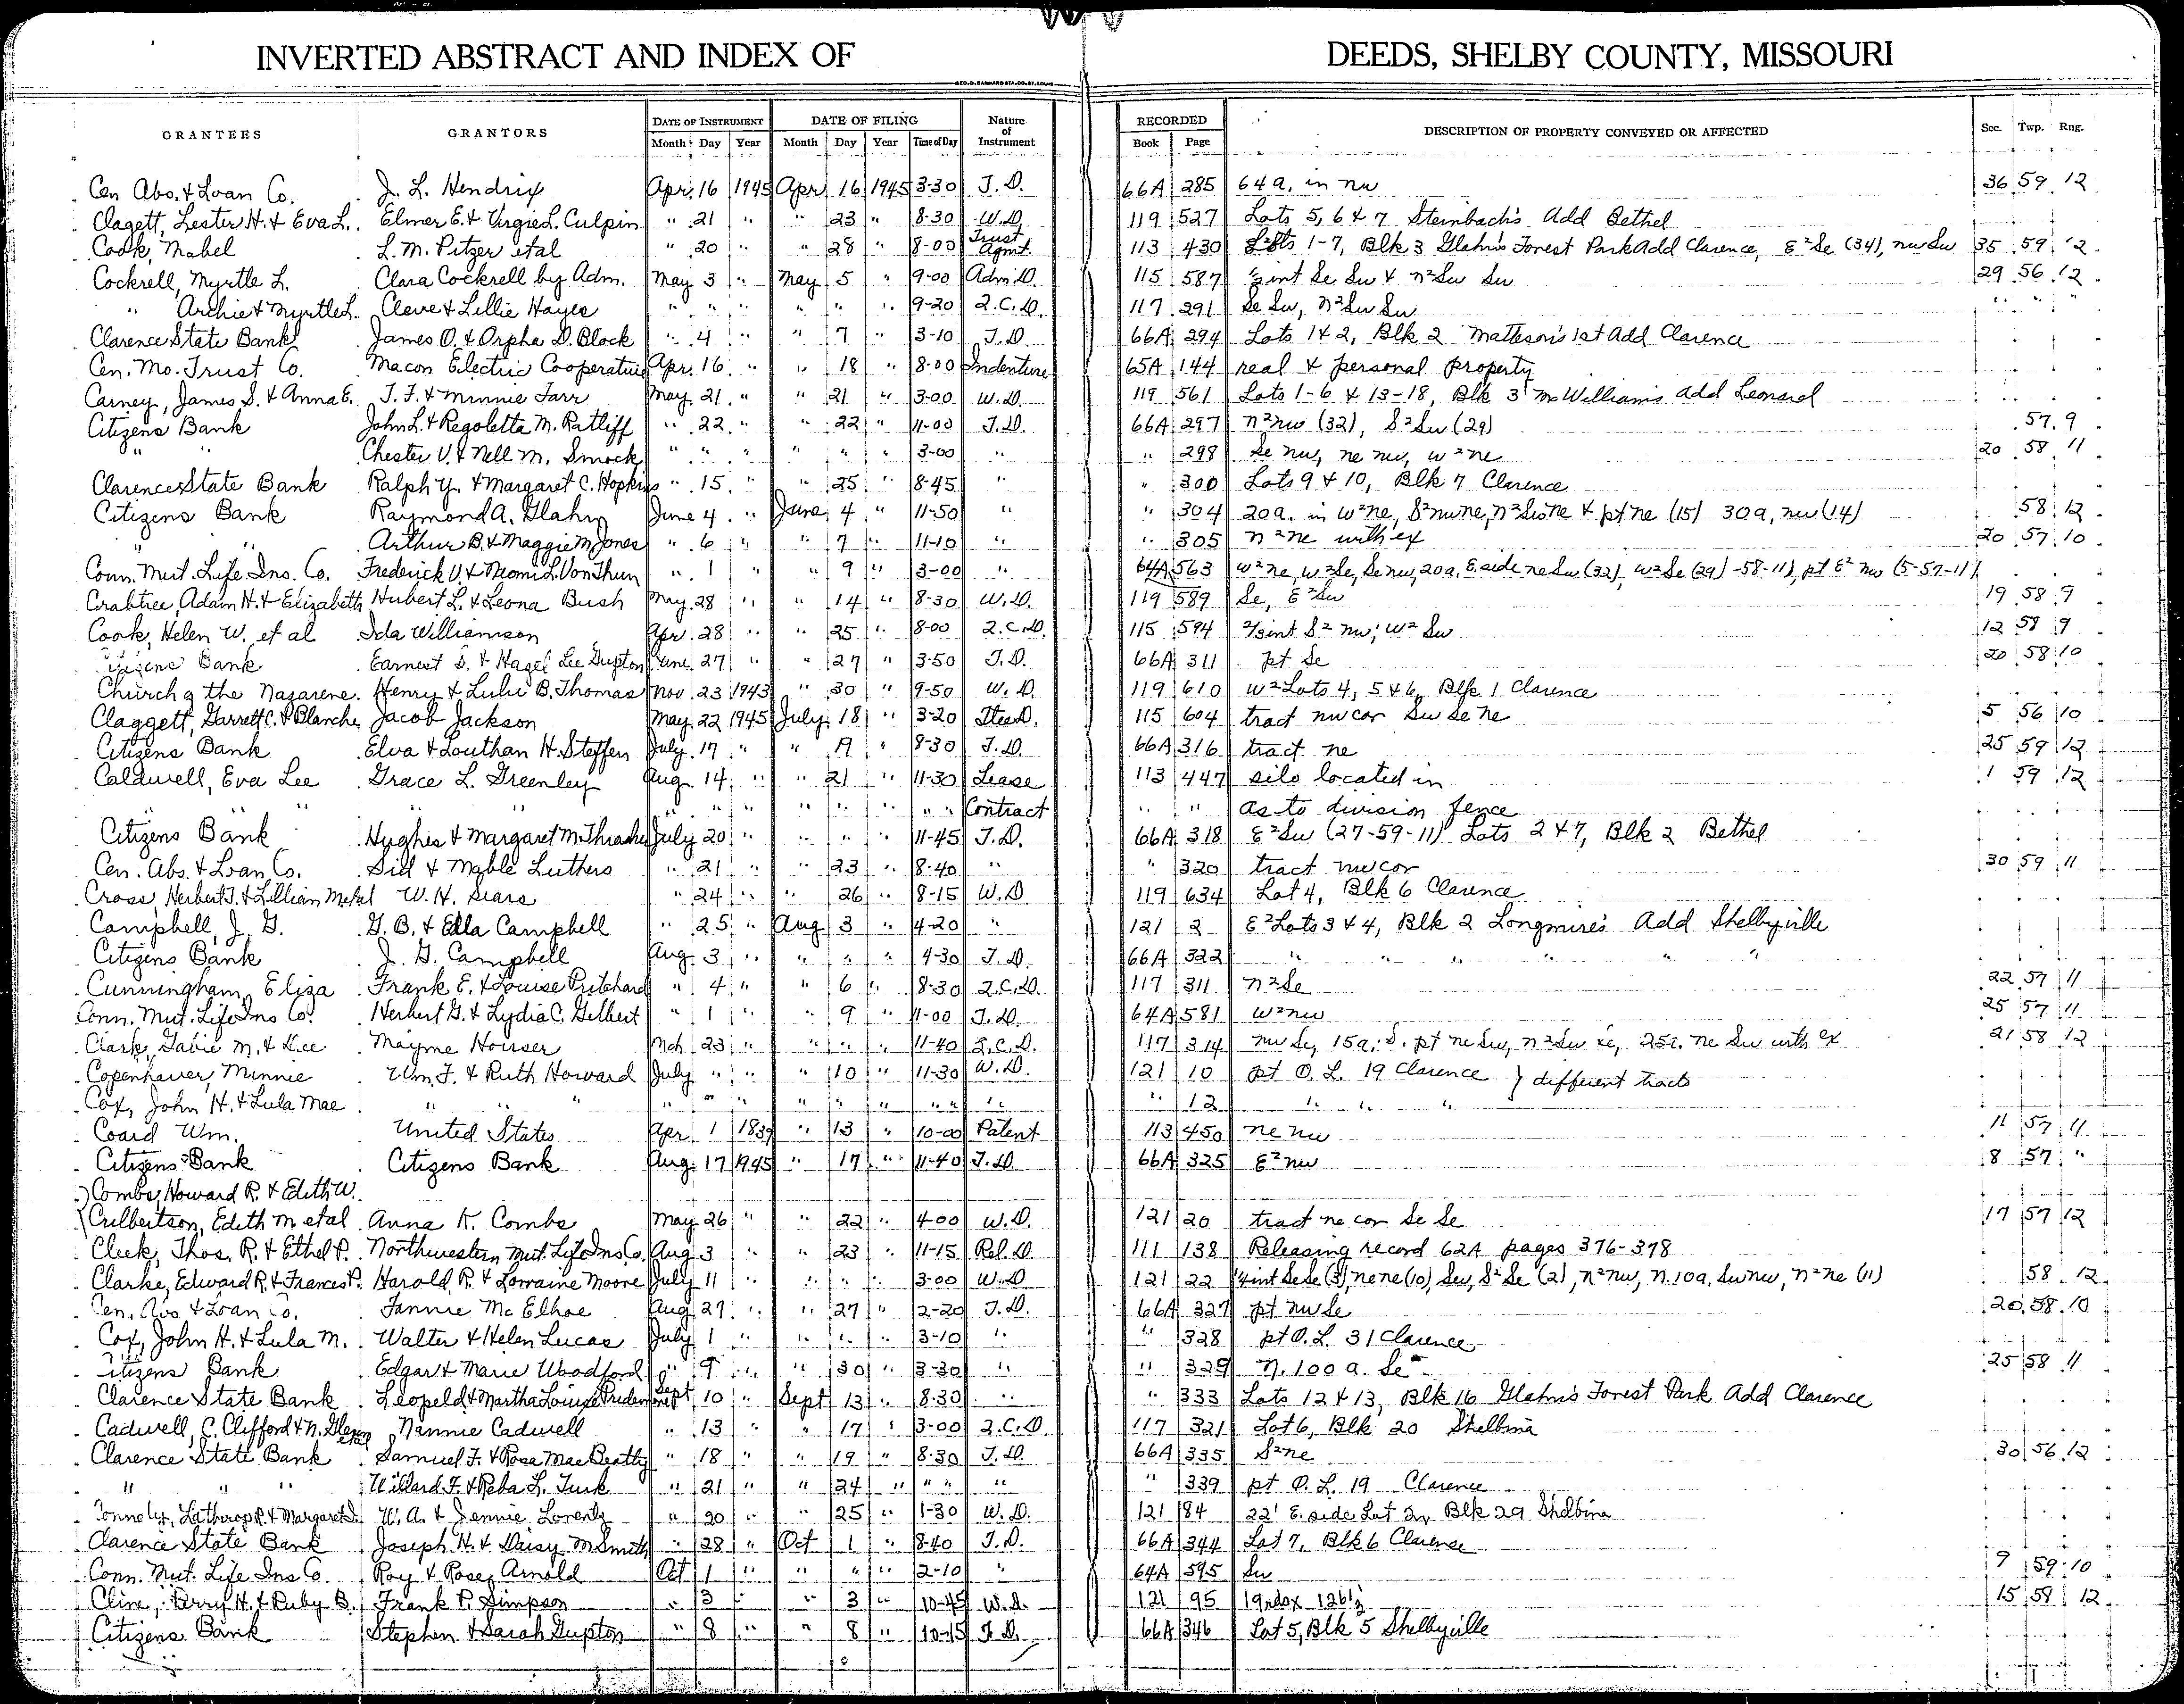 INVERTED ABSTRACT AND INDEX OF DEEDS, SHELBY COUNTY, MISSOURI
GEO. D. BARNARD STA. CO. ST. LOUIS
GRANTEES GRANTORS DATE OF INSTRUMENT DATE OF FILING Nature of Instrument RECORDED DESCRIPTION OF PROPERTY CONVEYED OR AFFECTED Sec. Twp. Rng.
Month Day Year Month Day Year Time of Day Book Page
Cen Abs. & Loan Co. J. L. Hendrix Apr. 16 1945 Apr 16 1945 3-30 T.D. 66A 285 64a. in nw 36 59 12
Clagett, Lester H. & Eva L. Elmer E. & Virgie L. Culpin " 21 " " 23 " 8-30 W.D. 119 527 Lots 5, 6 & 7 Steinbach's Add Bethel
Cook, Mabel L. M. Pitzer et al " 20 " " 28 " 8-00 Trust Agmt. 113 430 Lots 1-7, Blk 3 Glahn's Forest Park Add Clarence, E² Se (34), nw Sw 35 59 12
Cockrell, Myrtle L. Clara Cockrell by Adm. May 3 " May 5 " 9-00 Adm. D. 115 587 ½ int Se Sw & n² Sw Sw 29 56 12
" Archie & Myrtle L. Cleve & Lillie Hayes " " " " " " 9-20 2.C.D. 117 291 Se Sw, n² Sw Sw " " "
Clarence State Bank James O. & Orpha D. Block " 4 " " 7 " 3-10 T.D. 66A 294 Lots 1 & 2, Blk 2 Matteson's 1st Add Clarence
Cen. Mo. Trust Co. Macon Electric Cooperative Apr. 16 " " 18 " 8-00 Indenture 65A 144 real & personal property
Carney, James S. & Anna E. T. F. & Minnie Farr May 21 " " 21 " 3-00 W.D. 119 561 Lots 1-6 & 13-18, Blk 3 McWilliams Add Leonard
Citizens Bank John L. & Regoletta M. Ratliff " 22 " " 22 " 11-00 T.D. 66A 297 n² nw (32), S² Sw (29) 57 9
" " Chester V. & Nell M. Smock " " " " " " 3-00 " " 298 Se nw, ne nw, w² ne 20 58 11
Clarence State Bank Ralph Y. & Margaret C. Hopkins " 15 " " 25 " 8-45 " " 300 Lots 9 & 10, Blk 7 Clarence
Citizens Bank Raymond A. Glahn June 4 " June 4 " 11-50 " " 304 20a. in w² ne, S² nw ne, n² Sw ne & pt ne (15) 30a, nw (14) 58 12
" " Arthur B. & Maggie M. Jones " 6 " " 7 " 11-10 " " 305 n² ne with ex 20 57 10
Conn. Mut. Life Ins. Co. Frederick V. & Neomi L. Von Thun " 1 " " 9 " 3-00 " 64A 563 w² ne, w² Se, Se nw, 20a. E. side ne Sw (32), w² Se (29) -58-11), pt E² nw (5-57-11)
Crabtree, Adam H. & Elizabeth Hubert L. & Leona Bush May 28 " " 14 " 8-30 W.D. 119 589 Se, E² Sw 19 58 9
Cook, Helen W. et al Ida Williamson Apr 28 " " 25 " 8-00 2.C.D. 115 594 ⅔ int S² nw; w² Sw 12 58 9
Citizens Bank Earnest S. & Hazel Lee Gupton June 27 " " 27 " 3-50 T.D. 66A 311 pt Se 20 58 10
Church of the Nazarene Henry & Lulu B. Thomas Nov 23 1943 " 30 " 9-50 W.D. 119 610 w² Lots 4, 5 & 6, Blk 1 Clarence
Claggett, Garrett C. & Blanche Jacob Jackson May 22 1945 July 18 " 3-20 115 604 tract nw cor Sw Se ne 5 56 10
Citizens Bank Elva & Louthan H. Steffen July 17 " " 19 " 8-30 T.D. 66A 316 tract ne 25 59 12
Caldwell, Eva Lee Grace L. Greenley Aug. 14 " " 21 " 11-30 Lease 113 447 silo located in 1 59 12
" " " " " " " " " " " " " Contract " " as to division fence
Citizens Bank Hughes & Margaret M. Thrasher July 20 " " " " 11-45 T.D. 66A 318 E² Sw (27-59-11) Lots 2 & 7, Blk 2 Bethel
Cen. Abs. & Loan Co. Sid & Mable Luthers " 21 " " 23 " 8-40 " " 320 tract nw cor 30 59 11
Cross, Herbert J. & Lillian M et al W. H. Sears " 24 " " 26 " 8-15 W.D 119 634 Lot 4, Blk 6 Clarence
Campbell, J. G. G. B. & Ella Campbell " 25 " Aug 3 " 4-20 " 121 2 E² Lots 3 & 4, Blk 2 Longmire's Add Shelbyville
Citizens Bank J. G. Campbell Aug. 3 " " " " 4-30 T.D. 66A 322 " " " " " "
Cunningham, Eliza Frank E. & Louise Pritchard " 4 " " 6 " 8-30 2.C.D. 117 311 n² Se 22 57 11
Conn. Mut. Life Ins Co. Herbert G. & Lydia C. Gilbert " 1 " " 9 " 11-00 T.D. 64A 581 w² nw 25 57 11
Clark, Gabie M. & Dee Mayme Houser Mch 23 " " " " 11-40 2.C.D. 117 314 nw Se, 15a. S. pt ne Sw, n² Sw Se, 25a. ne Sw with ex 21 58 12
Copenhaver, Minnie Wm. F. & Ruth Howard July " " " 10 " 11-30 W.D. 121 10 pt O. L. 19 Clarence } different tracts
Cox, John H. & Lula Mae " " " " " " " " " " " " " 12 " " "
Coard Wm. United States Apr 1 1839 " 13 " 10-00 Patent 113 450 ne nw 11 57 11
Citizens Bank Citizens Bank Aug. 17 1945 " 17 " 11-40 T.D. 66A 325 E² nw 8 57 "
Combs, Howard R. & Edith W.
Culbertson, Edith M. et al Anna K. Combs May 26 " " 22 " 4-00 W.D. 121 20 tract ne cor Se Se 17 57 12
Cleek, Thos. R. & Ethel P. Northwestern Mut. Life Ins Co. Aug 3 " " 23 " 11-15 Rel. D. 111 138 Releasing record 62A pages 376-378
Clarke, Edward R. & Frances P. Harold R. & Lorraine Moore July 11 " " " " 3-00 W.D 121 22 ¼ int Se Se (3), ne ne (10), Sw, S² Se (2), n² nw, n. 10a. Sw nw, n² ne (11) 58 12
Cen. Abs & Loan Co. Fannie McElhoe Aug 27 " " 27 " 2-20 T.D. 66A 327 pt nw Se 20 58 10
Cox, John H. & Lula M. Walter & Helen Lucas July 1 " " " " 3-10 " " 328 pt O. L. 31 Clarence
Citizens Bank Edgar & Marie Woodford " 9 " " 30 " 3-30 " " 329 n. 100 a. Se 25 58 11
Clarence State Bank Leopeld & Martha Louise Sept 10 " Sept 13 " 8-30 " " 333 Lots 12 & 13, Blk 16 Glahn's Forest Park Add Clarence
Cadwell, C. Clifford & N. Glenn et al Nannie Cadwell " 13 " " 17 " 3-00 2.C.D. 117 321 Lot 6, Blk 20 Shelbina
Clarence State Bank Samuel F. & Rosa Mae Beatty " 18 " " 19 " 8-30 T.D. 66A 335 S² ne 30 56 12
" " " Willard F. & Reba L. Turk " 21 " " 24 " " " " " 339 pt O. L. 19 Clarence
Connelly, Lathrop R. & Margaret S. W. A. & Jennie Lorentz " 20 " " 25 " 1-30 W.D. 121 84 22' E. side Lot Blk 29 Shelbina
Clarence State Bank Joseph H. & Daisy M Smith " 28 " Oct 1 " 8-40 T.D. 66A 344 Lot 7, Blk 6 Clarence
Conn. Mut. Life Ins Co. Roy & Rose Arnold Oct 1 " " " " 2-10 " 64A 595 Sw 7 59 10
Cline, Perry H. & Ruby B. Frank P. Simpson " 3 " " 3 " 10-45 W.D. 121 95 15 59 12
Citizens Bank Stephen & Sarah Gupton " 8 " " 8 " 10-15 T.D. 66A 346 Lot 5, Blk 5 Shelbyville